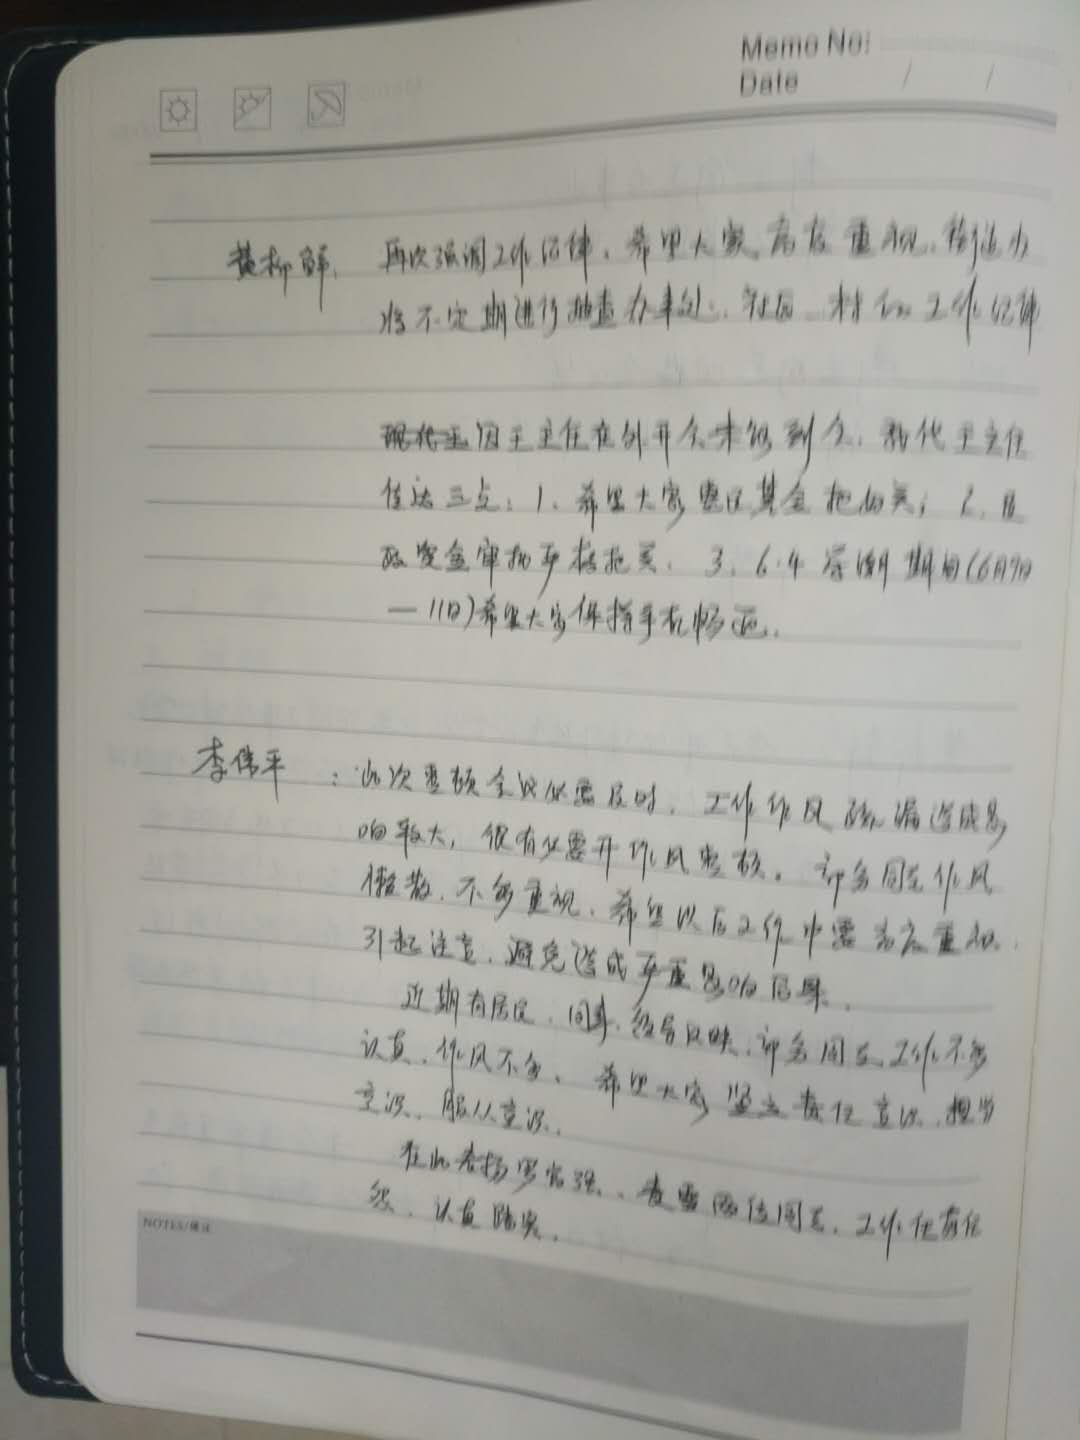 Memo No:
Date / /
黄柳鲜: 再次强调工作纪律,希望大家高度重视,街道办
将不定期进行抽查办事处、社区、村的工作纪律
现代王因王主任在外开会未能到会,我代王主任
传达三点:1、希望大家惠民资金把好关;2、
政资金审批严格把关、3、6.4学潮期间(6月9日
—11日)希望大家保持手机畅通.
李伟平:此次整顿会议必需及时,工作作风疏漏造成影
响较大,很有必要开作风整顿。部分同志作风
懒散、不够重视、希望以后工作中要高度重视、
引起注意、避免造成严重影响后果.
近期有居民、同事、领导反映,部分同志工作不够
认真、作风不多、希望大家坚立责任意识、担当
意识、服从意识.
在此表扬罗富强、两位同志,工作任劳任
怨、认真踏实.
NOTES/备注